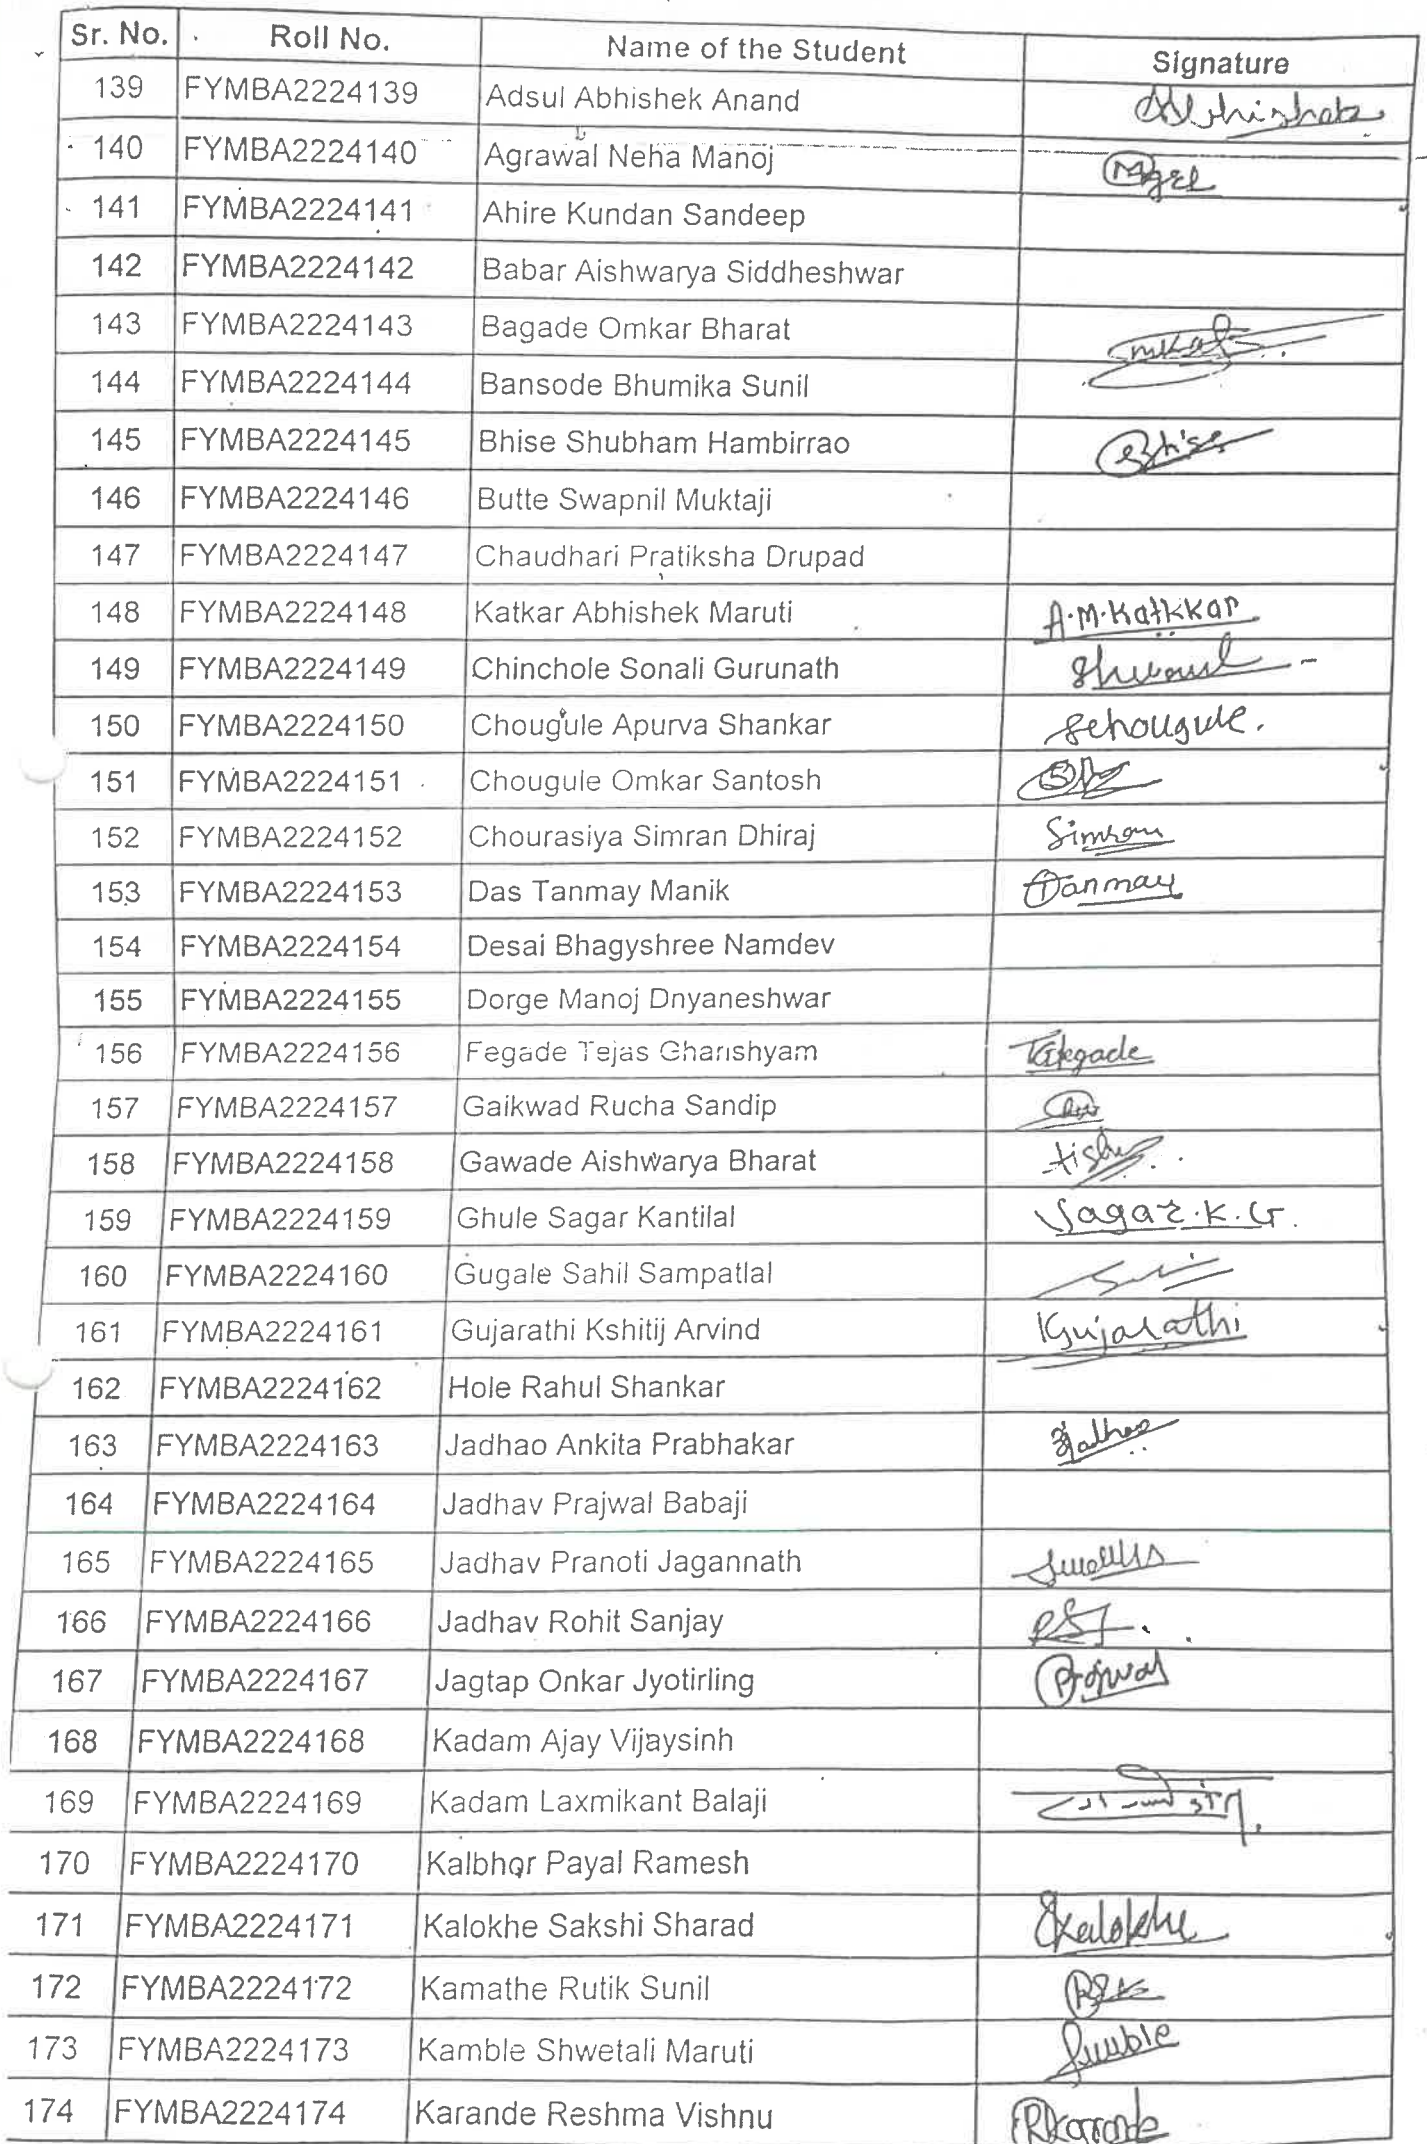 Sr. No. Roll No. Name of the Student Signature
139 FYMBA2224139 Adsul Abhishek Anand Abhishek
140 FYMBA2224140 Agrawal Neha Manoj
141 FYMBA2224141 Ahire Kundan Sandeep
142 FYMBA2224142 Babar Aishwarya Siddheshwar
143 FYMBA2224143 Bagade Omkar Bharat
144 FYMBA2224144 Bansode Bhumika Sunil
145 FYMBA2224145 Bhise Shubham Hambirrao Bhise
146 FYMBA2224146 Butte Swapnil Muktaji
147 FYMBA2224147 Chaudhari Pratiksha Drupad
148 FYMBA2224148 Katkar Abhishek Maruti A.M.Katkkar
149 FYMBA2224149 Chinchole Sonali Gurunath
150 FYMBA2224150 Chougule Apurva Shankar
151 FYMBA2224151 Chougule Omkar Santosh
152 FYMBA2224152 Chourasiya Simran Dhiraj Simran
153 FYMBA2224153 Das Tanmay Manik Tanmay
154 FYMBA2224154 Desai Bhagyshree Namdev
155 FYMBA2224155 Dorge Manoj Dnyaneshwar
156 FYMBA2224156 Fegade Tejas Ghanshyam
157 FYMBA2224157 Gaikwad Rucha Sandip
158 FYMBA2224158 Gawade Aishwarya Bharat
159 FYMBA2224159 Ghule Sagar Kantilal Sagar.K.G.
160 FYMBA2224160 Gugale Sahil Sampatlal
161 FYMBA2224161 Gujarathi Kshitij Arvind Kgujarathi
162 FYMBA2224162 Hole Rahul Shankar
163 FYMBA2224163 Jadhao Ankita Prabhakar
164 FYMBA2224164 Jadhav Prajwal Babaji
165 FYMBA2224165 Jadhav Pranoti Jagannath
166 FYMBA2224166 Jadhav Rohit Sanjay RSJ.
167 FYMBA2224167 Jagtap Onkar Jyotirling
168 FYMBA2224168 Kadam Ajay Vijaysinh
169 FYMBA2224169 Kadam Laxmikant Balaji
170 FYMBA2224170 Kalbhor Payal Ramesh
171 FYMBA2224171 Kalokhe Sakshi Sharad Skalokhe
172 FYMBA2224172 Kamathe Rutik Sunil RSK
173 FYMBA2224173 Kamble Shwetali Maruti
174 FYMBA2224174 Karande Reshma Vishnu RKarande